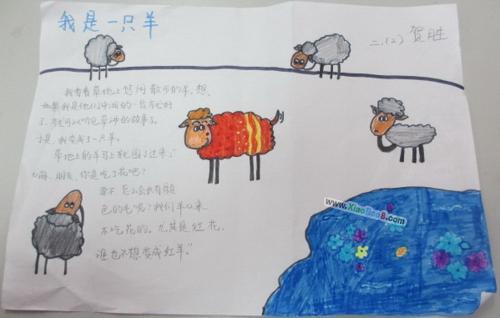 我是一只羊
二.(2) 贺胜
我看着草地上悠闲散步的羊,想,
如果我是他们中间的一员有多好
了,就可以听见草洲的故事了。
于是,我变成了一只羊。
草地上的羊马上就围了过来,"
嗨,朋友,你是吃了花吧?
要不怎么会有颜
色的毛呢?我们羊从来
不吃花的。尤其是红花,
谁也不想变成红羊。"
www.XiaoBaoB.com